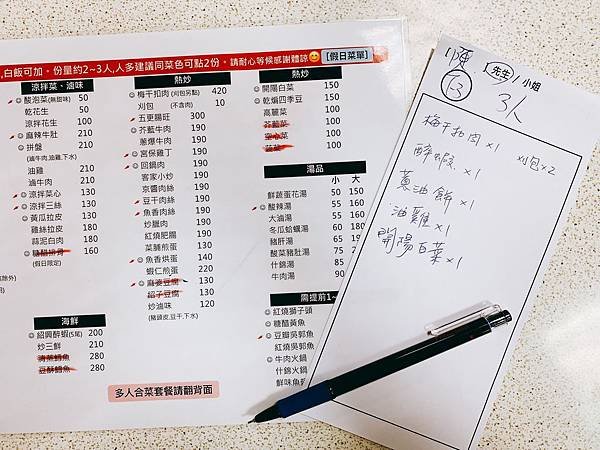 ,白飯可加。份量約2~3人,人多建議同菜色可點2份。請耐心等候感謝體諒😊 [假日菜單]
涼拌菜、滷味
酸泡菜(無甜味) 50
乾花生 50
涼拌花生 50
麻辣牛肚 210
拼盤 210
(滷牛肉,油雞,下水)
油雞 210
滷牛肉 210
涼拌菜心 130
涼拌三絲 130
黃瓜拉皮 130
雞絲拉皮 180
蒜泥白肉 180
糖醋排骨 160
(假日限定)
除外)
海鮮
紹興醉蝦(5尾) 200
炒三鮮 210
清蒸鱈魚 280
豆酥鱈魚 280
熱炒
梅干扣肉(刈包另點) 420
刈包 (不含肉) 10
五更腸旺 300
芥藍牛肉 190
蔥爆牛肉 190
宮保雞丁 190
回鍋肉 190
客家小炒 190
京醬肉絲 190
豆干肉絲 190
魚香肉絲 190
炒臘肉 190
紅燒肥腸 190
菜脯煎蛋 140
魚香烘蛋 140
蝦仁煎蛋 220
麻婆豆腐 130
蛤子豆腐 130
炒滷味 120
(豬頭皮,豆干,下水)
熱炒
開陽白菜 150
乾煸四季豆 150
高麗菜 100
芥藍菜 100
空心菜 100
菠菜 100
湯品
小 大
鮮蔬蛋花湯 50 150
酸辣湯 55 160
大滷湯 55 160
冬瓜蛤蠣湯 60 180
豬肝湯 65
酸菜豬肚湯 75
什錦湯 85
牛肉湯 90
需提前1~
紅燒獅子頭
糖醋黃魚
豆瓣吳郭魚
紅燒吳郭魚
牛肉火鍋
什錦火鍋
鮮味魚
多人合菜套餐請翻背面
陳 先生/小姐
3人
梅干扣肉 x1 刈包x2
醉蝦 x1
蔥油餅 x1
油雞 x1
開陽白菜 x1